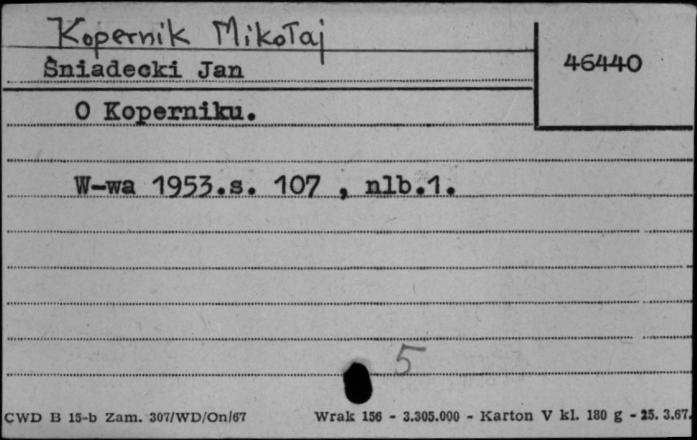 Kopernik Mikołaj
46440
Śniadecki Jan
O Koperniku.
W-wa 1953.s. 107 , nlb.1.
5
CWD B 15-b Zam. 307/WD/On/67 Wrak 156 - 3.305.000 - Karton V kl. 180 g - 25. 3.67.